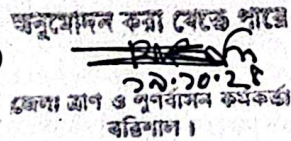 অনুমোদন করা যেতে পারে
১৯.১০.২৫
জেলা ত্রাণ ও পুনর্বাসন কর্মকর্তা
বরিশাল।